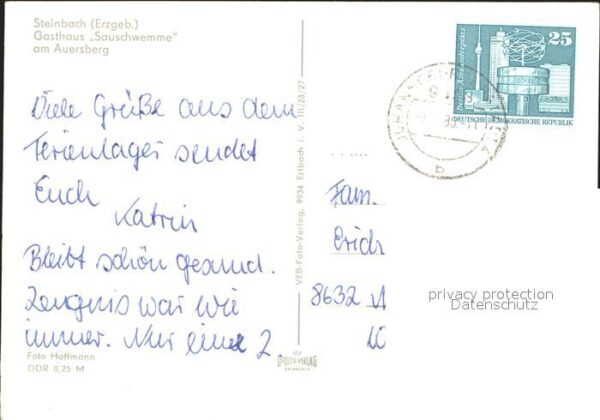 Steinbach (Erzgeb.)
Gasthaus „Sauschwemme"
am Auersberg
Viele Grüße aus dem
Ferienlager sendet
Euch
Katrin
Bleibt schön gesund.
Zeugnis war wie
immer. Nur eine 2.
Foto Hoffmann
DDR 0,25 M
VEB-Foto-Verlag, 9934 Erlbach i. V. III/23/27
25
Berlin-Alexanderplatz
DEUTSCHE DEMOKRATISCHE REPUBLIK
b
Fam.
Erich
8632
privacy protection
Datenschutz